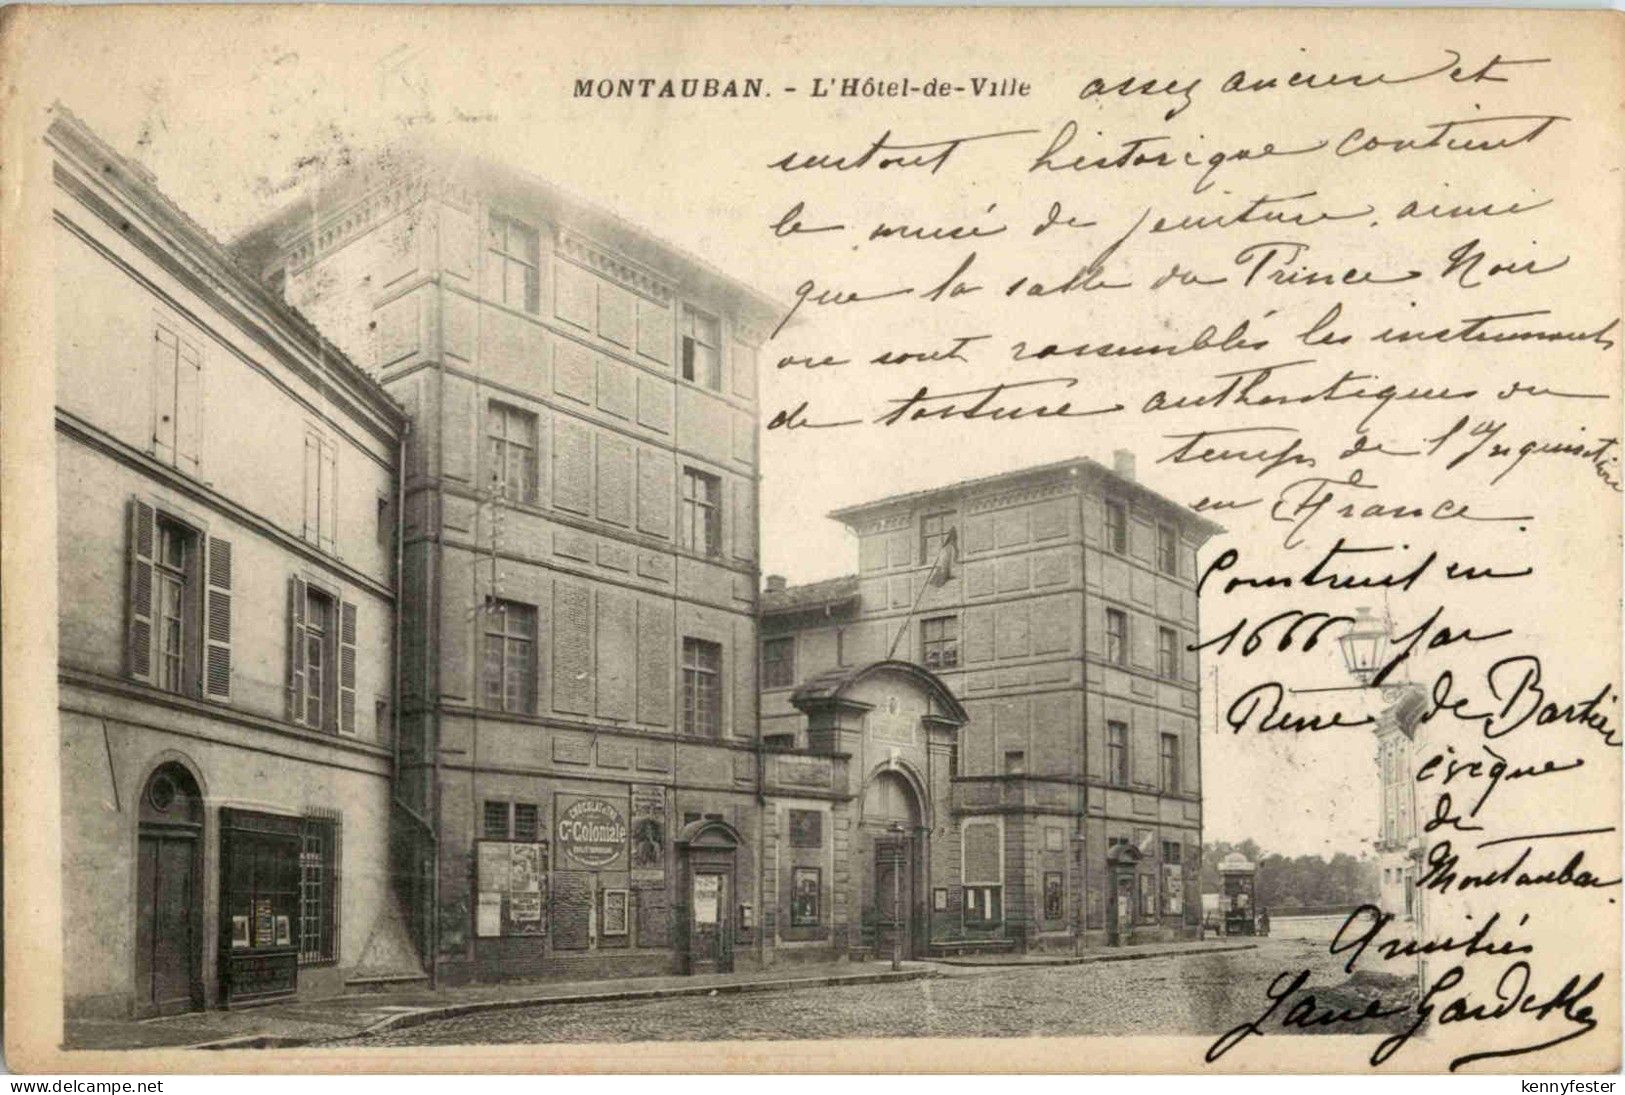 MONTAUBAN. - L'Hôtel-de-Ville
assez ancien et
surtout historique contient
le musé de peinture, ainsi
que la salle du Prince Noir
ou sont rassemblés les instruments
de torture authentiques du
temps de l'Inquisition
en France.
Construit en
1666 par
de Bertier
évêque
de
Montauban
Amitiés
CHOCOLAT
Cie Coloniale
kennyfester